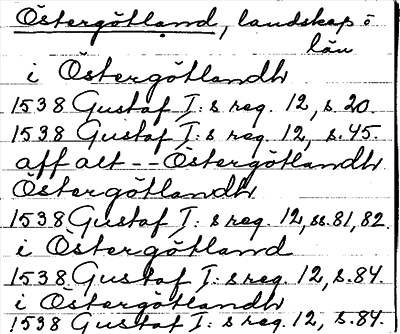 Östergötland, landskap o
län
i Östergötlandh
1538 Gustaf I:s reg. 12, s. 20.
1538 Gustaf I:s reg. 12, s. 45.
aff alt -- Östergötlandh
Östergötlandh
1538 Gustaf I:s reg. 12, ss. 81, 82.
i Östergötland
1538 Gustaf I:s reg. 12, s. 84.
i Östergötlandh
1538 Gustaf I:s reg. 12, s. 84.